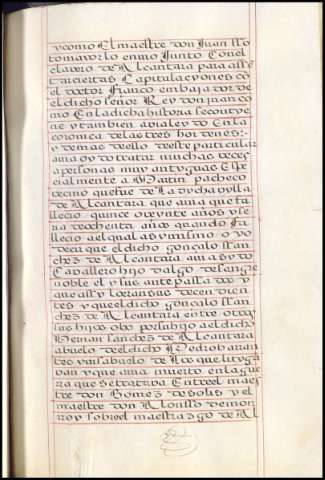 y como El maestre don Juan sso
tomayor lo enuio Junto Con el
clauero de Alcantara para asse
tar çiertas Capitulaçiones cō
el dotor Franco embajador de
el dicho señor Rey don juan co
mo En la dicha historia se contie
ne y tambien auialeydo En la
coronica de las tres hordenes:-
y demas de ello deste particular
auia oydo tratar muchas veçes
a personas muy antyguas Espe
cialmente a Martin pacheco
vecino que fue de La dicha uylla
de Alcantara que auia que fa
llecio quinçe o veynte años y se
ria de ochenta años quando fa
llecio a el qual assimismo oyo
deçir que el dicho gonçalo san
chez de Alcantara auia sydo
Cauallero hijo dalgo de sangre
noble el y sus antepassados y
que assy lo eran sus deçendien
tes y que el dicho gonçalo san
chez de Alcantara entre otros
sus hijos obo por su hijo a el dicho
Hernan sanchez de Alcantara
abuelo de el dicho Pedro baran
tes visabuelo de Los que lityga
uan y que auia muerto en la gue
rra que se trataua Entre el maes
tre don Gomez de solis y el
maestre don Alonsso de mon
rroy sobre el maestrazgo de Al